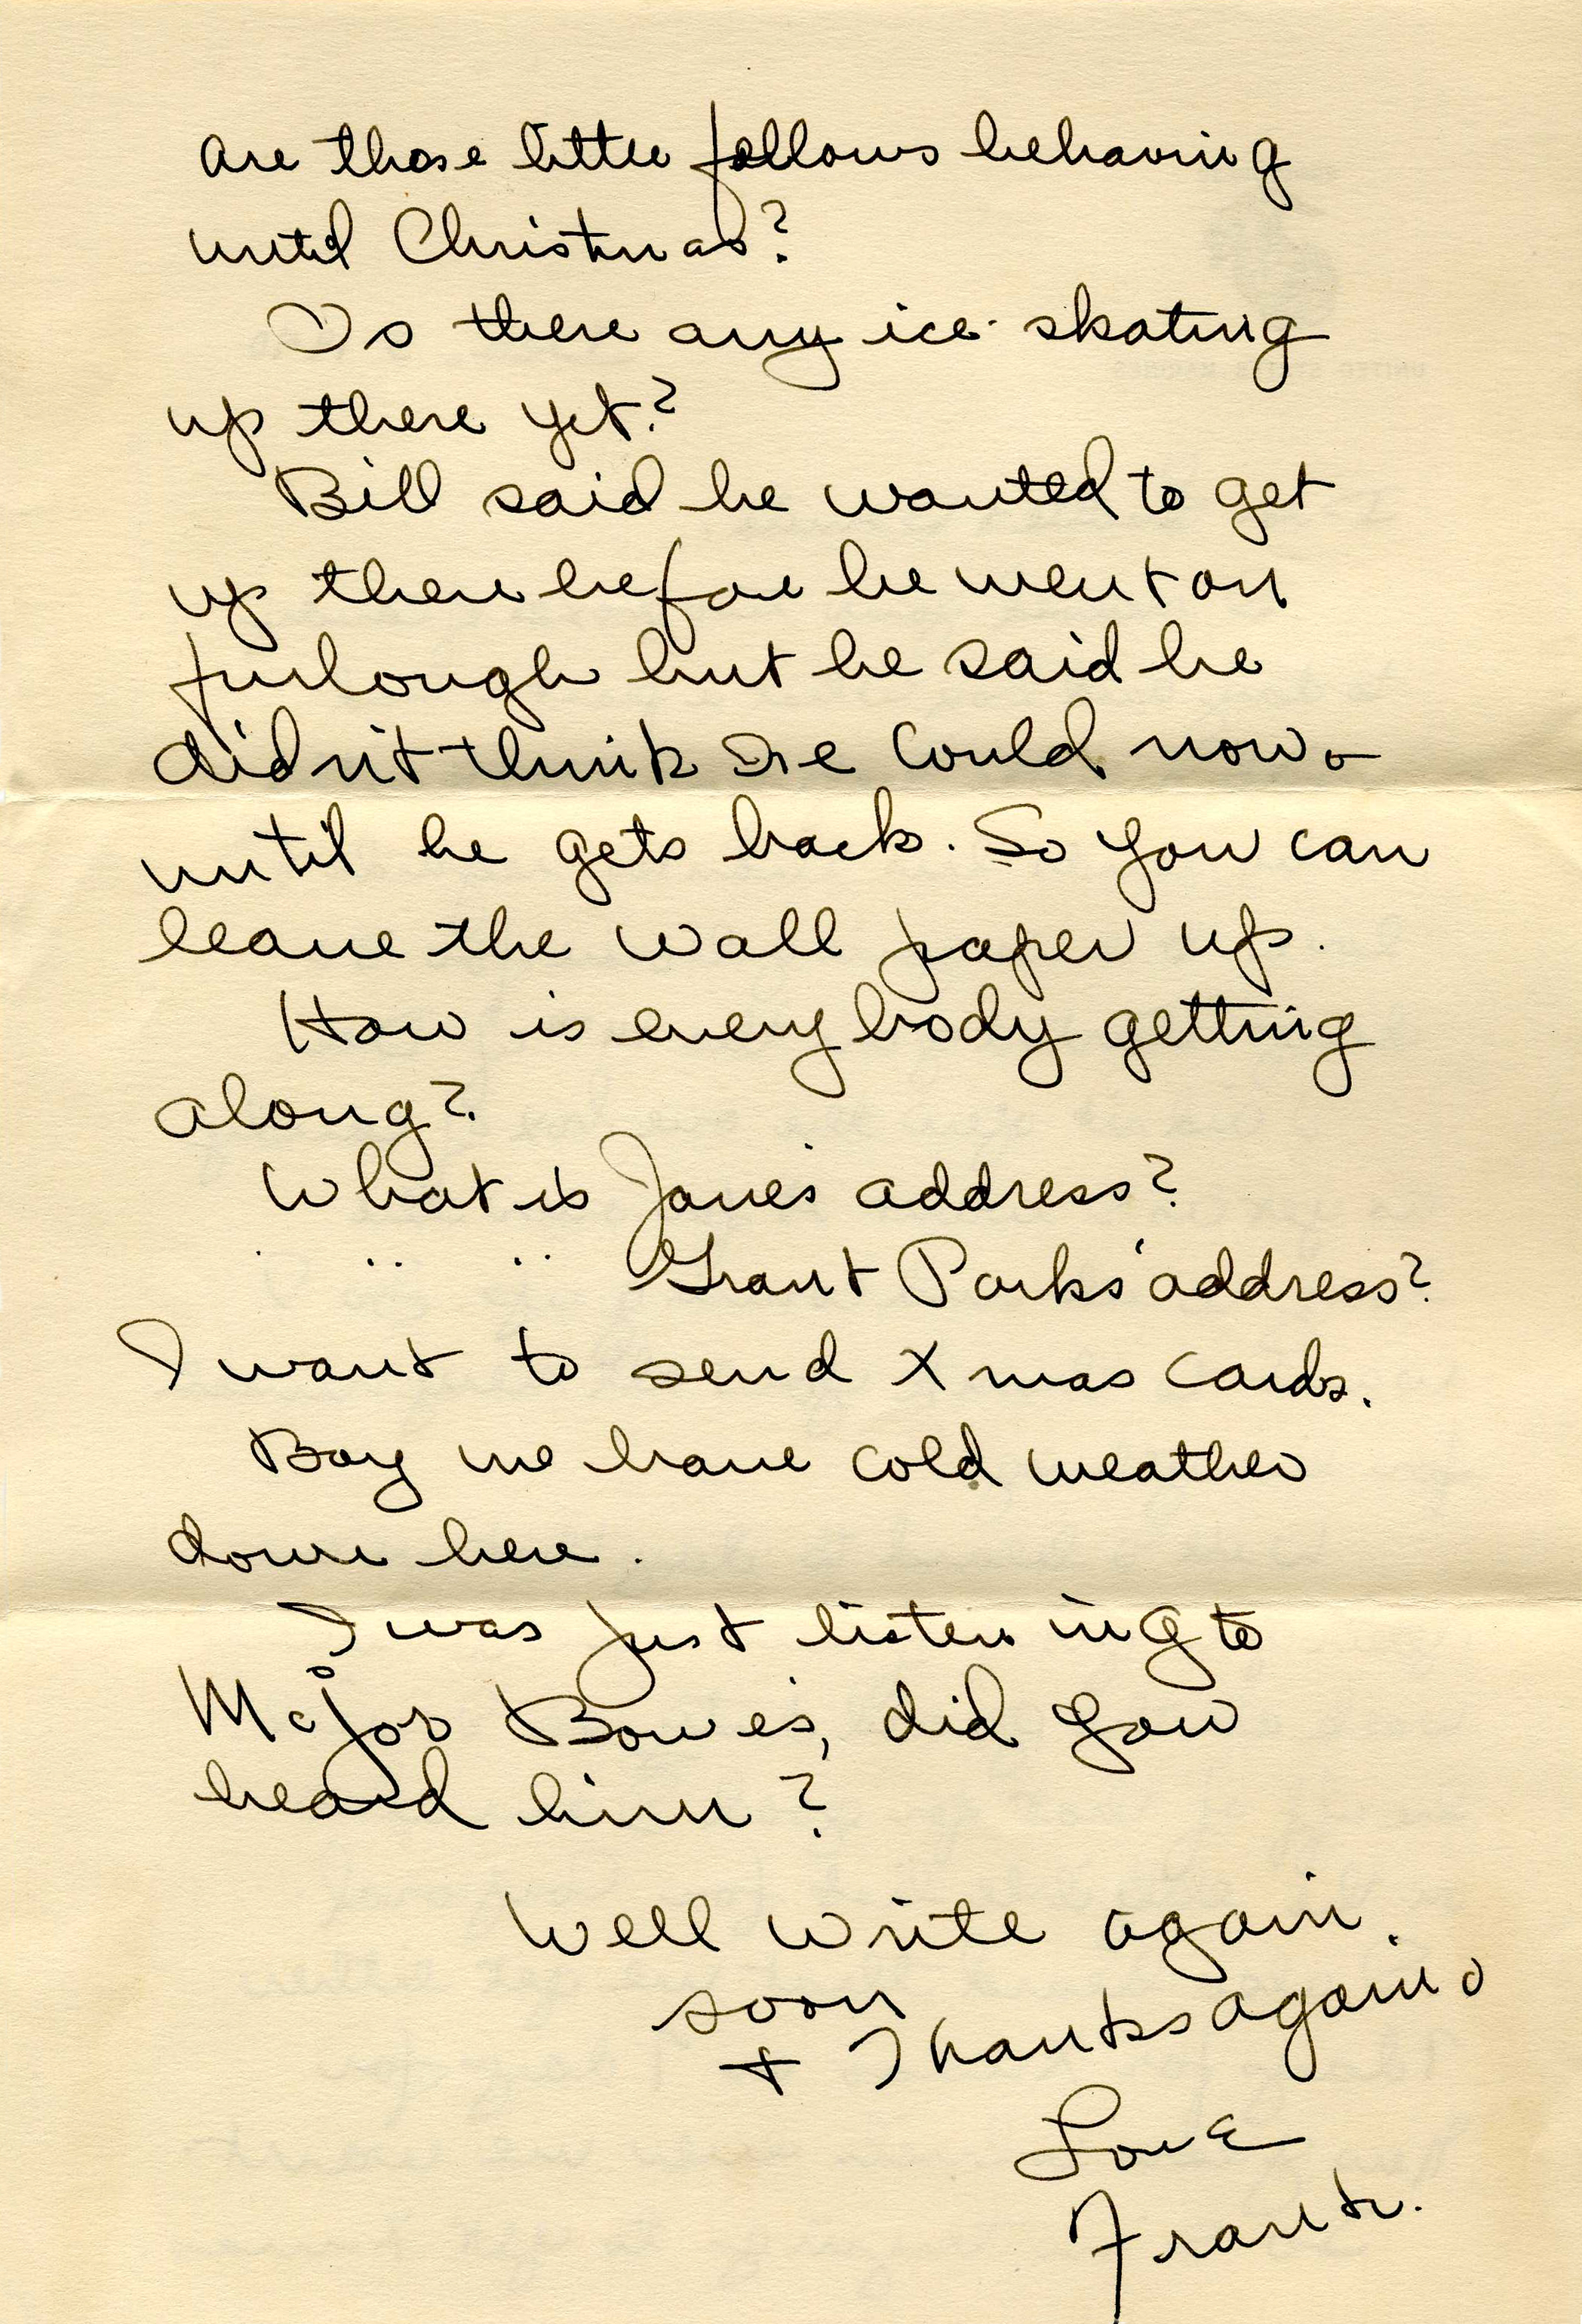 are those little fellows behaving
until Christmas?
Is there any ice skating
up there yet?
Bill said he wanted to get
up there before he went on
furlough but he said he
didn't think he could now
until he gets back. So you can
leave the wall paper up.
How is everybody getting
along?
What is Jane's address?
. .. .. Grant Parks' address?
I want to send Xmas cards.
Boy we have cold weather
down here.
I was just listening to
Major Bowes, did you
heard him?
Well write again
soon
+ Thanks again
Love
Frank.